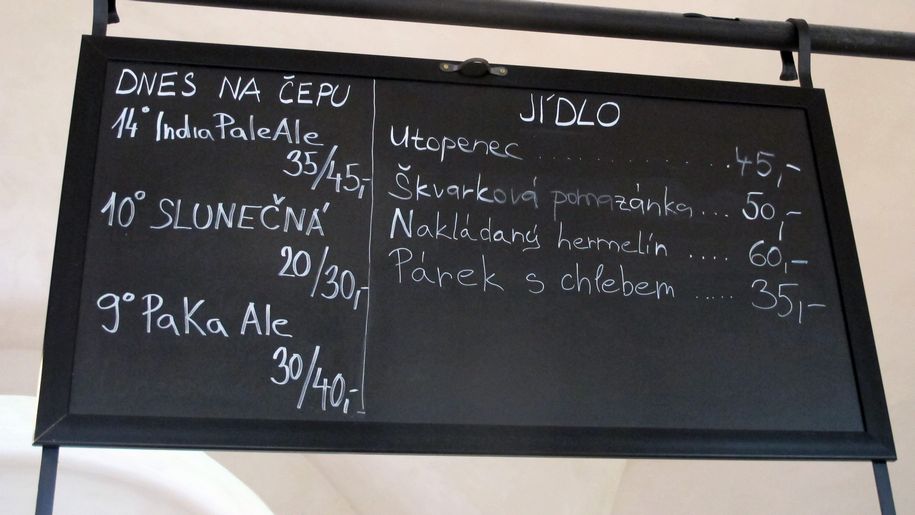 DNES NA ČEPU
14° India Pale Ale
35/45,-
10° SLUNEČNÁ
20/30,-
9° PaKa Ale
30/40,-
JÍDLO
Utopenec ............ 45,-
Škvarková pomazánka... 50,-
Nakládaný hermelín .... 60,-
Párek s chlebem ..... 35,-